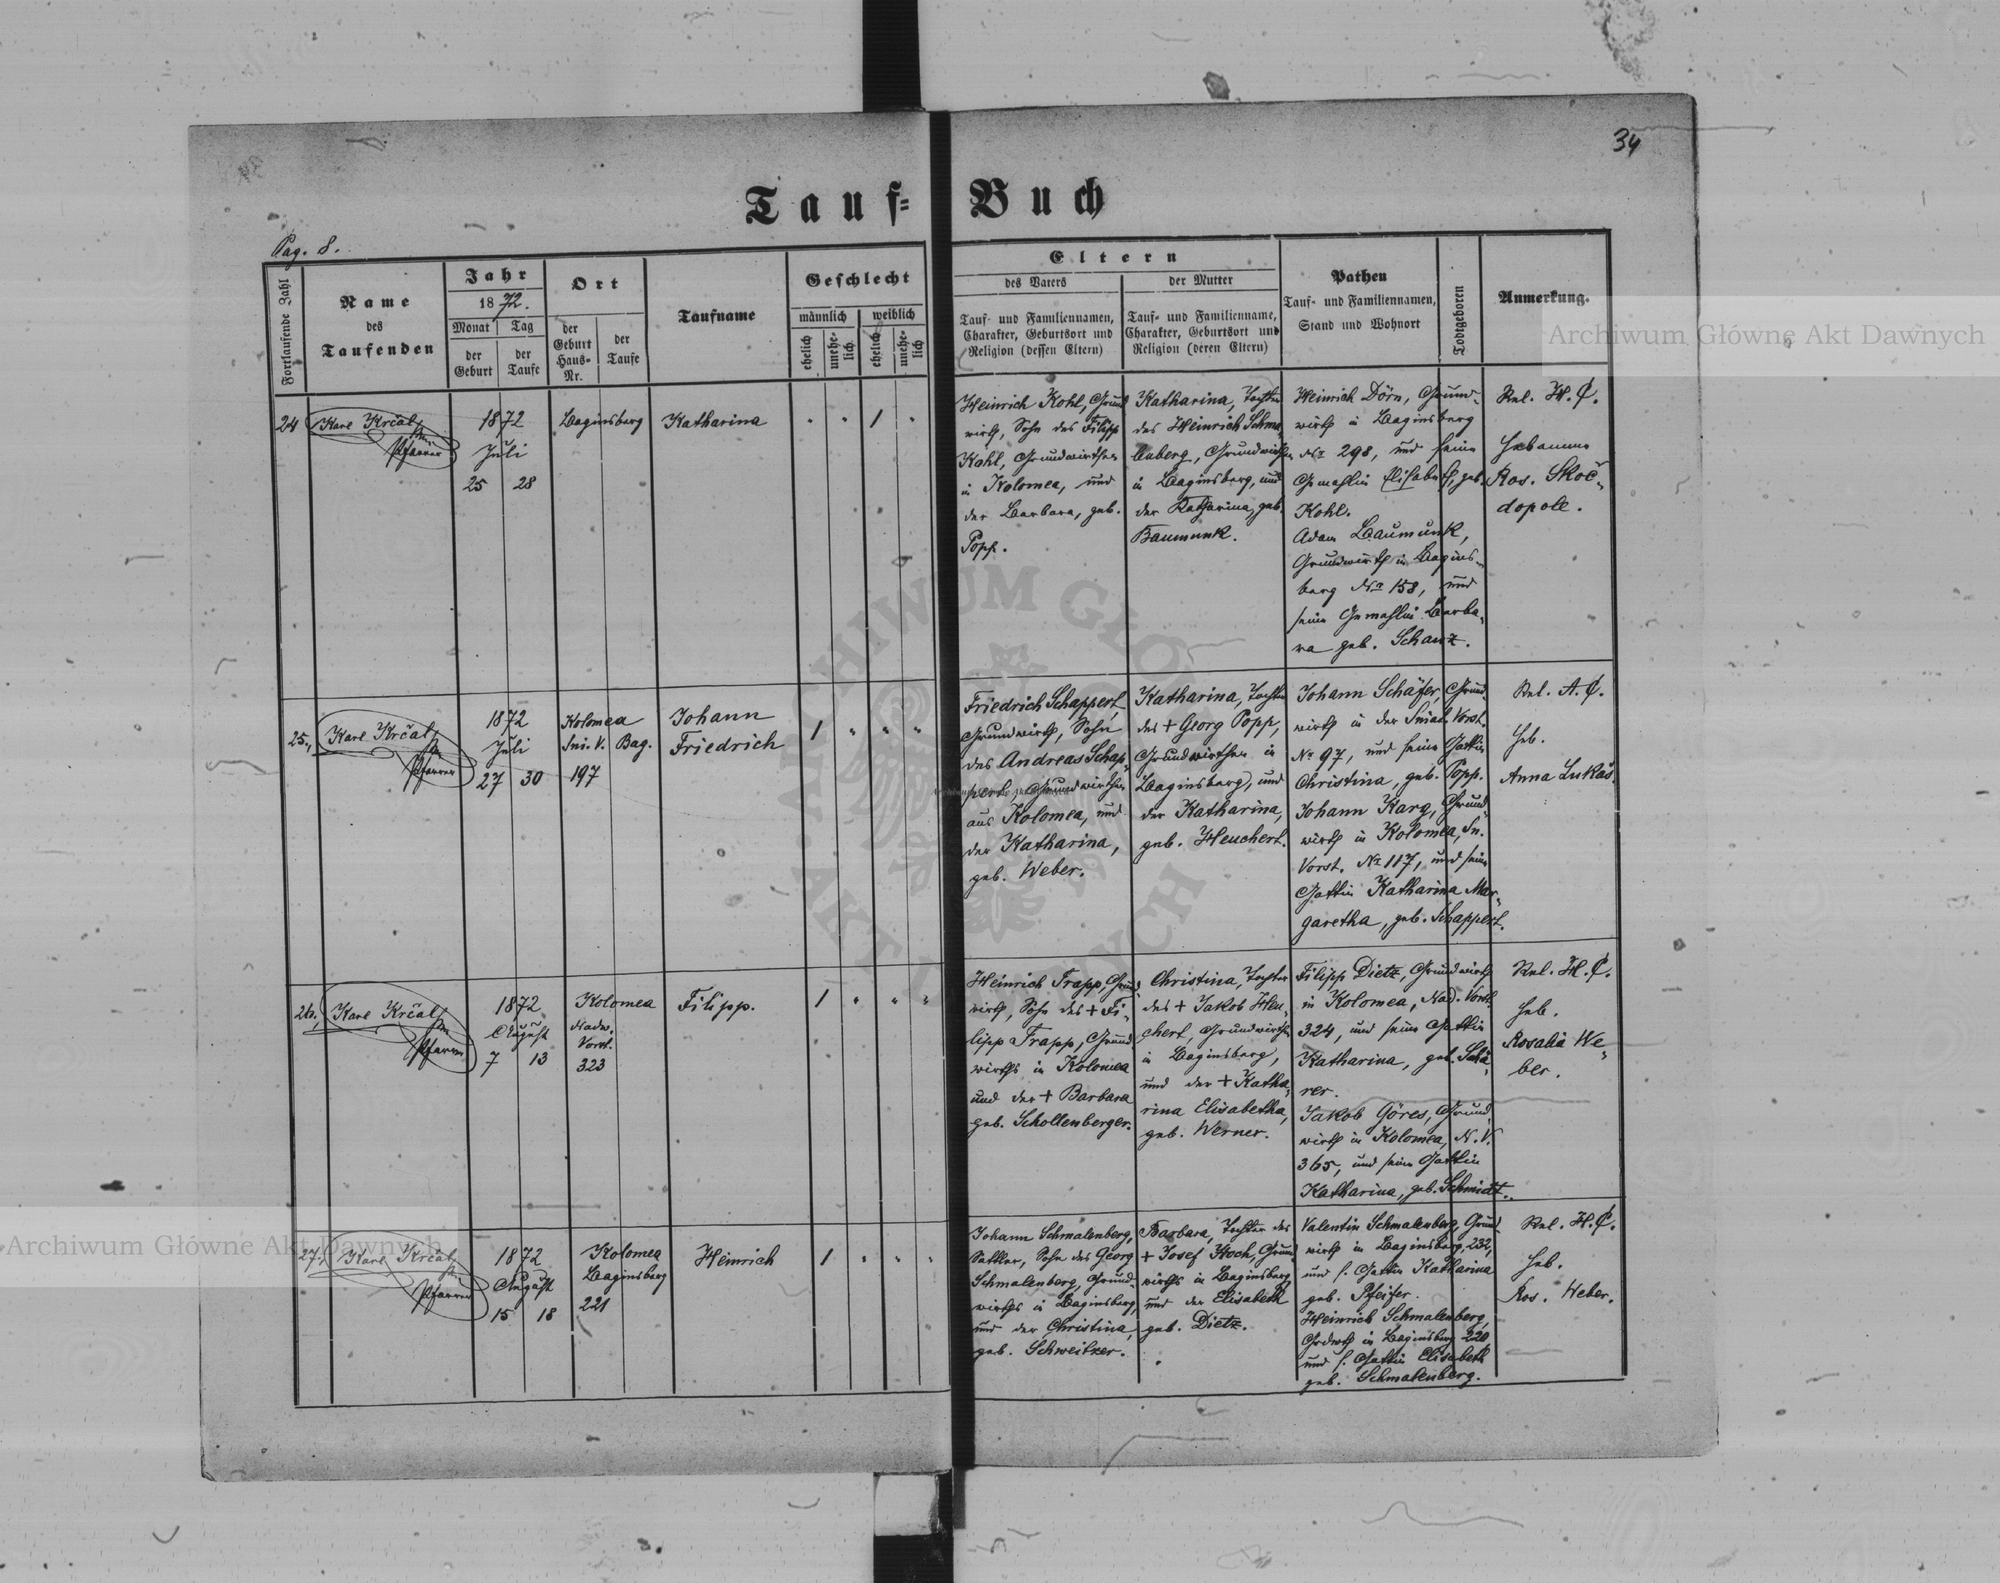 34
Tauf-Buch
Pag. 8.
Fortlaufende Zahl
Name
des
Taufenden
Jahr
1872.
Monat Tag
der Geburt
der Taufe
Ort
der Geburt Haus-Nr.
der Taufe
Taufname
Geschlecht
männlich weiblich
ehelich
unehe-lich
ehelich
unehe-lich
Eltern
des Vaters
Tauf- und Familiennamen,
Charakter, Geburtsort und
Religion (dessen Eltern)
der Mutter
Tauf- und Familienname,
Charakter, Geburtsort und
Religion (deren Eltern)
Pathen
Tauf- und Familiennamen,
Stand und Wohnort
Todtgeboren
Anmerkung.
24
Karl Krčal
Pfarrer
1872
Juli
25 28
Baginsberg
Katharina
1
Heinrich Kohl, Grund
wirth, Sohn des Filipp
Kohl, Grundwirthen
in Kolomea, und
der Barbara, geb.
Popp.
Katharina, Tochter
des Heinrich Schma-
lenberg, Grundwirthen
in Baginsberg, und
der Katharina, geb.
Baumunk.
Heinrich Dörn, Grund-
wirth in Baginsberg
No 298, und seine
Gemahlin Elisabeth, geb.
Kohl.
Adam Baumunk,
Grundwirth in Bagins-
berg No 158, und
seine Gemahlin Barba-
ra geb. Schanz.
Rel. H. C.
Hebamme
Ros. Skoč-
dopole.
25.
Karl Krčal
Pfarrer
1872
Juli
27 30
Kolomea
Sni. V. Bag.
197
Johann
Friedrich
1
Friedrich Schappert,
Grundwirth, Sohn
des Andreas Schap-
pert, Grundwirthen
aus Kolomea, und
der Katharina,
geb. Weber.
Katharina, Tochter
des + Georg Popp,
Grundwirthen in
Baginsberg, und
der Katharina,
geb. Heuchert.
Johann Schäfer, Grund
wirth in der Sniat. Vorst.
No 97, und seine Gattin
Christina, geb. Popp.
Johann Karg, Grund-
wirth in Kolomea, Sn.
Vorst. No 117, und seine
Gattin Katharina Mar-
garetha, geb. Schappert.
Rel. A. C.
Heb.
Anna Lukás.
26.
Karl Krčal
Pfarrer
1872
August
7 13
Kolomea
Nadw.
Vorst.
323
Filipp.
1
Heinrich Trapp, Grund-
wirth, Sohn des + Fi-
lipp Trapp, Grund
wirths in Kolomea
und der + Barbara
geb. Schollenberger.
Christina, Tochter
des + Jakob Heu-
chert, Grundwirthen
in Baginsberg,
und der + Katha-
rina Elisabetha,
geb. Werner.
Filipp Dietz, Grundwirth
in Kolomea, Nad. Vorst.
324, und seine Gattin
Katharina, geb. Schä-
rer.
Jakob Göres, Grund
wirth in Kolomea, N. V.
365, und seine Gattin
Katharina, geb. Schmidt.
Rel. H. C.
Heb.
Rosalia We-
ber.
27.
Karl Krčal
Pfarrer
1872
August
15 18
Kolomea
Baginsberg
221
Heinrich
1
Johann Schmalenberg,
Sattler, Sohn des Georg
Schmalenberg, Grund-
wirths in Baginsberg,
und der Christina,
geb. Schweitzer.
Barbara, Tochter des
+ Josef Koch, Grund
wirths in Baginsberg
und der Elisabeth
geb. Dietz.
Valentin Schmalenberg, Grund
wirth in Baginsberg, 232,
und s. Gattin Katharina
geb. Pfeifer.
Heinrich Schmalenberg,
Grdwth in Baginsberg 220,
und s. Gattin Elisabeth
geb. Schmalenberg.
Rel. H. C.
Heb.
Ros. Weber.
Archiwum Główne Akt Dawnych
Archiwum Główne Akt Dawnych